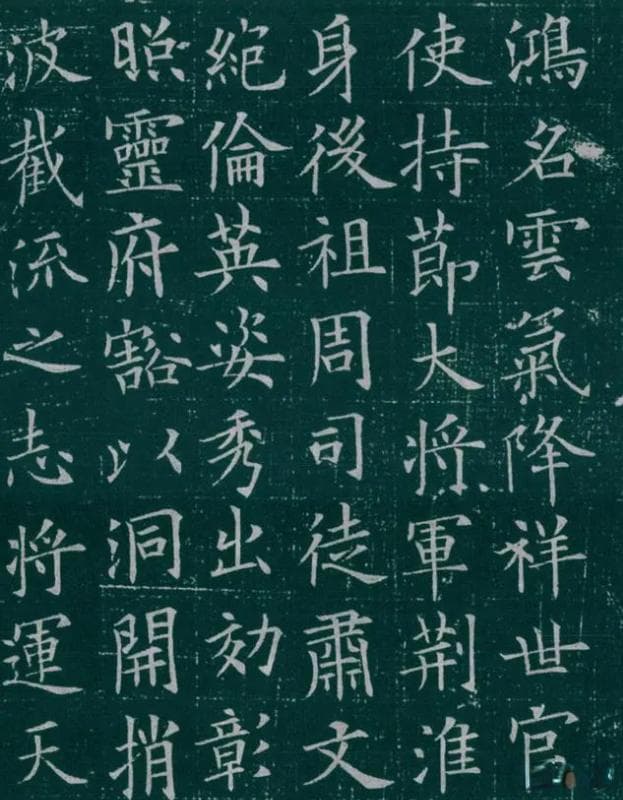 鴻名雲氣降祥世官
使持節大將軍荆淮
身後祖周司徒肅文
絶倫英姿秀出効彰
照靈府豁以洞開捎
波截流之志將運天